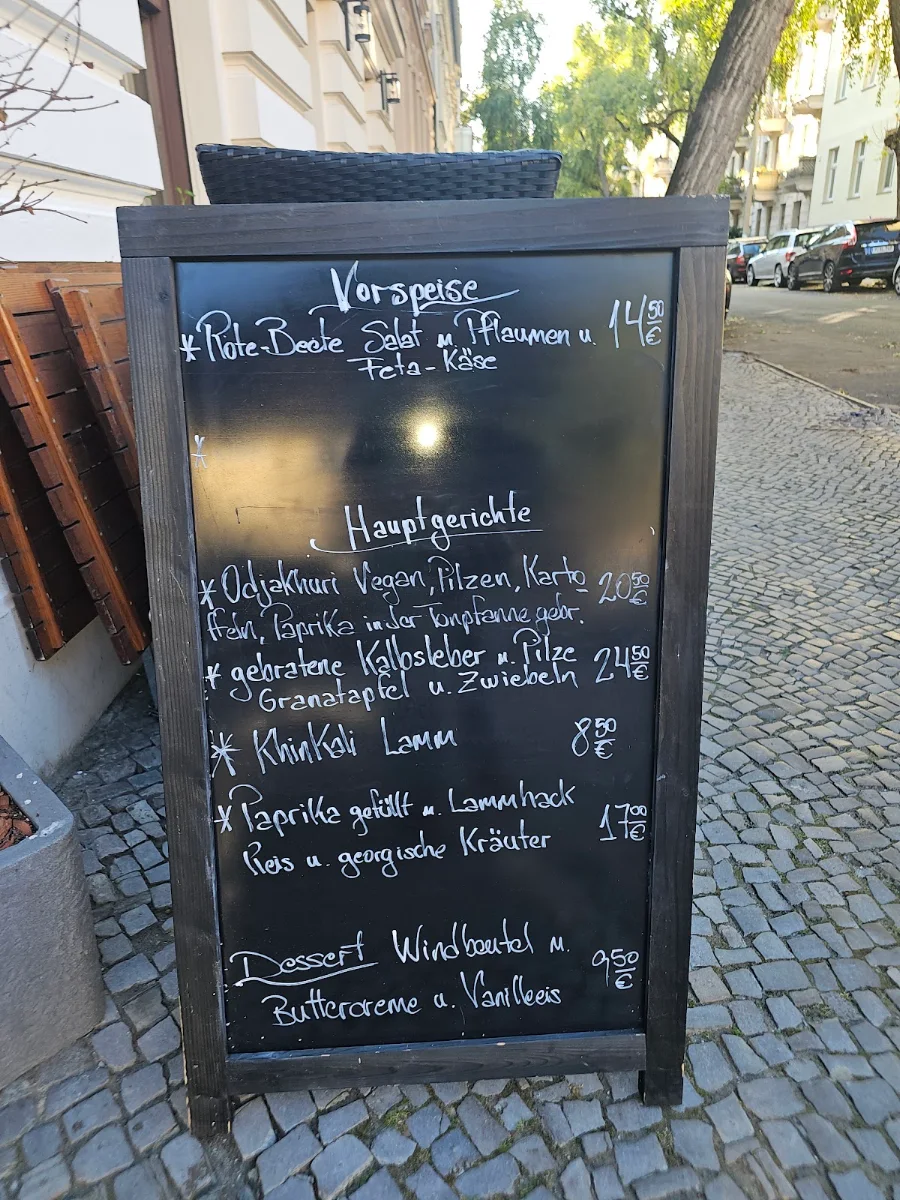 Vorspeise
* Rote-Beete Salat m. Pflaumen u. 14 50 €
Feta-Käse
*
Hauptgerichte
* Odjakhuri Vegan, Pilzen, Karto 20 50 €
ffeln, Paprika in der Tonpfanne gebr.
* gebratene Kalbsleber m. Pilze 24 50 €
Granatapfel u. Zwiebeln
* Khinkali Lamm 8 50 €
* Paprika gefüllt m. Lammhack 17 00 €
Reis u. georgische Kräuter
Dessert Windbeutel m. 9 50 €
Buttercreme u. Vanilleeis